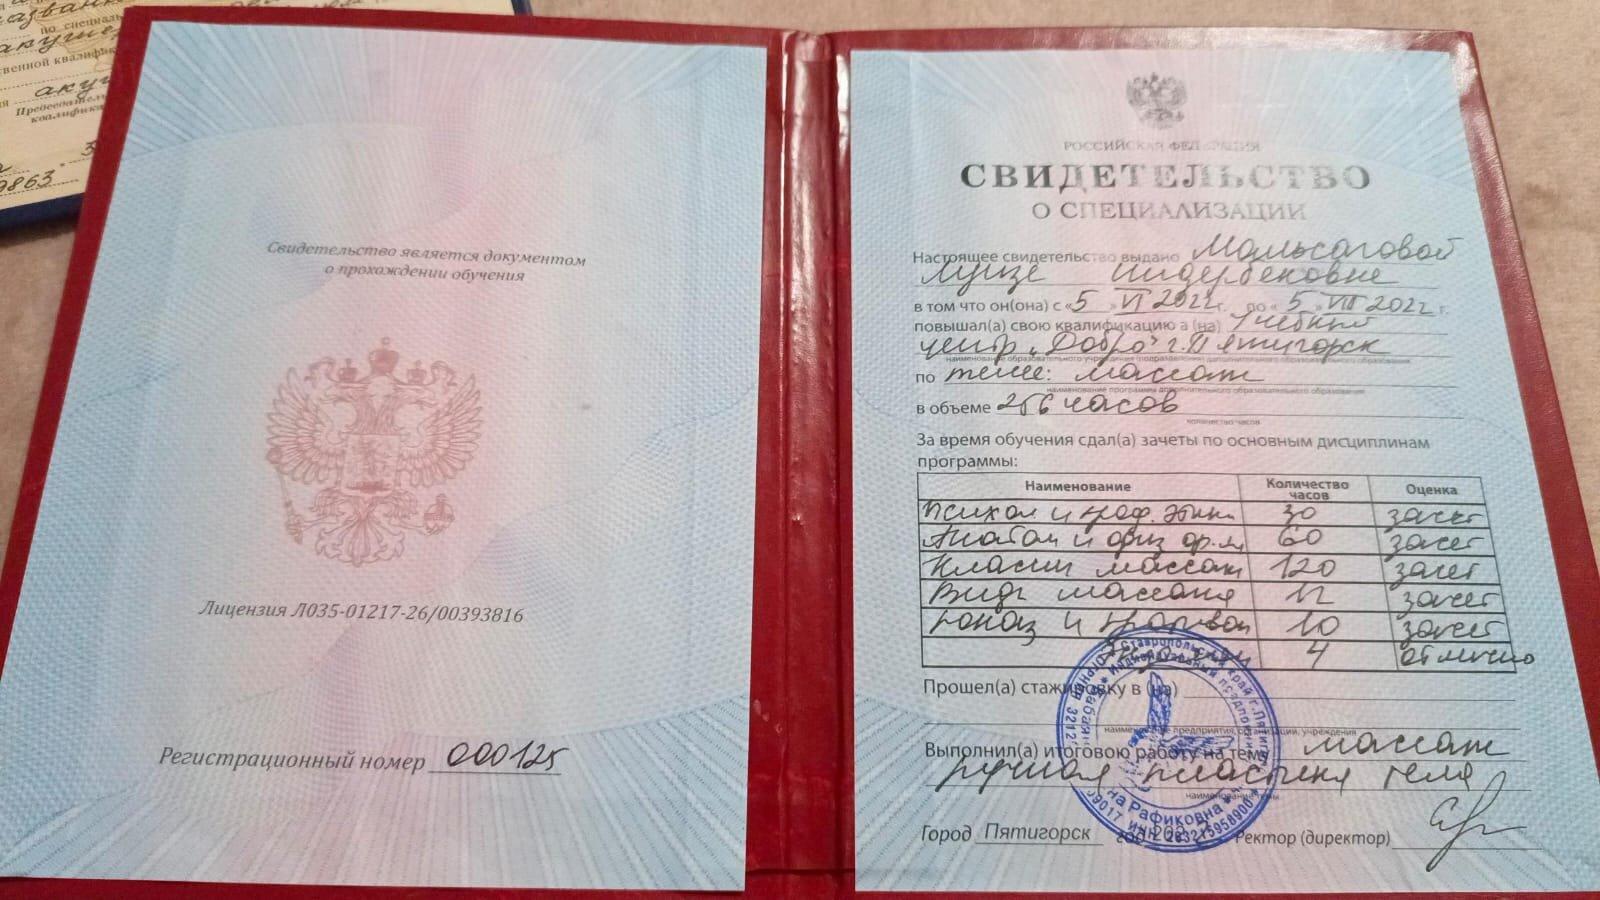 по специаль
акуше
венной квалифи
аку
Председатель
квалифика
9863
Свидетельство является документом
о прохождении обучения
Лицензия Л035-01217-26/00393816
Регистрационный номер 000125
РОССИЙСКАЯ ФЕДЕРАЦИЯ
СВИДЕТЕЛЬСТВО
О СПЕЦИАЛИЗАЦИИ
Настоящее свидетельство выдано Мальсаговой
Луизе Индербековне
в том что он(она) с «5 » VI 2022 г. по « 5 » VIII 2022 г.
повышал(а) свою квалификацию а (на) Учебный
центр „Добро" г. Пятигорск
наименование образовательного учреждения (подразделения) дополнительного образования
по теме: массаж
наименование программы дополнительного образования
в объеме 256 часов
количество часов
За время обучения сдал(а) зачеты по основным дисциплинам
программы:
Наименование Количество часов Оценка
Психол и проф. этики 30 зачет
Анатом и физ 60 зачет
Класси массаж 120 зачет
Виды массажа зачет
и 10 зачет
4 отлично
Прошел(а) стажировку в (на)
наименование предприятия, организации, учреждения
Выполнил(а) итоговою работу на тему массаж
ручная пластика тела
наименование темы
Город Пятигорск Ректор (директор)
Ставропольский край г. Пятигорск
Индивидуальный предприни
на Рафиковна